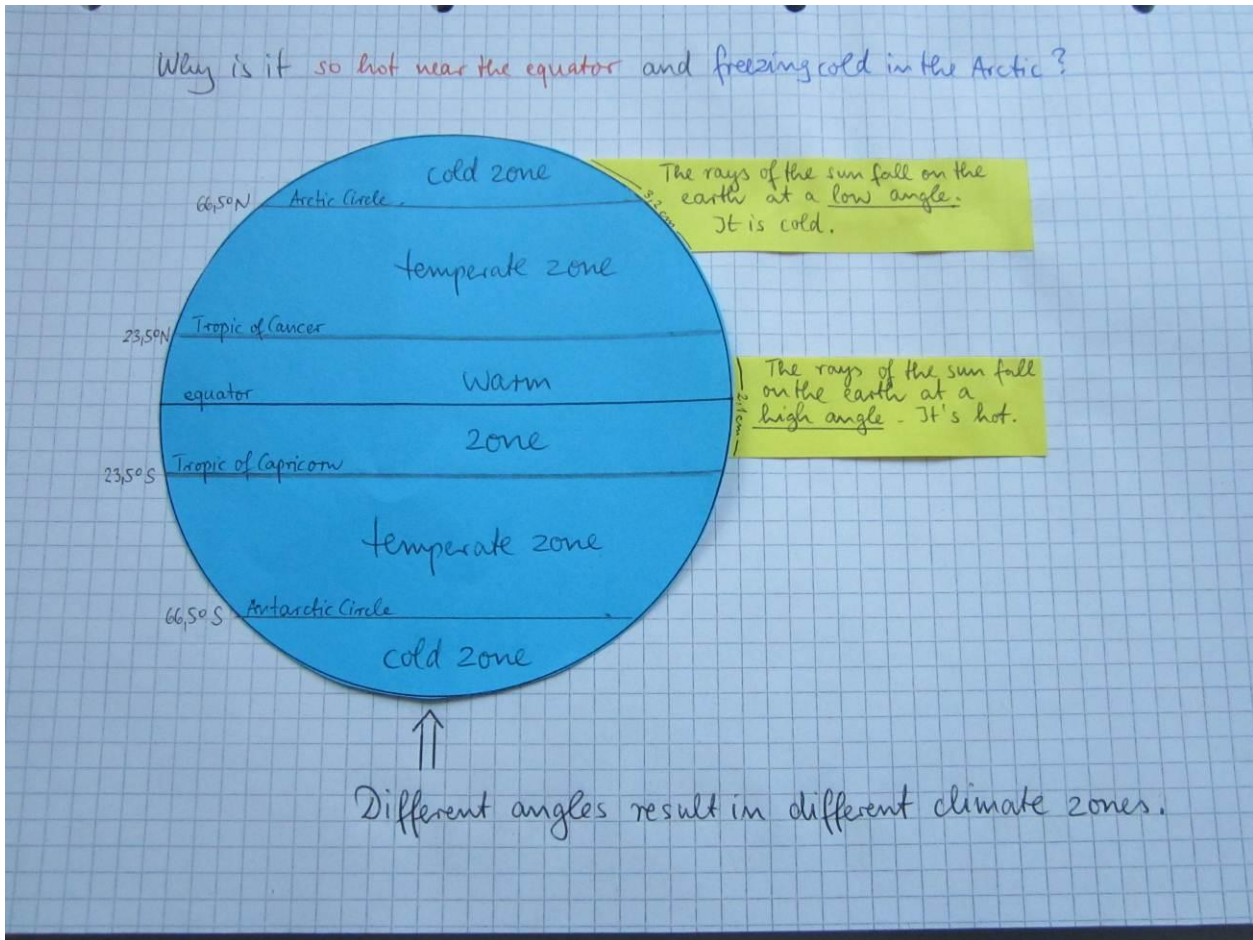 Why is it so hot near the equator and freezing cold in the Arctic?
cold zone
66,5°N
Arctic Circle
The rays of the sun fall on the
earth at a low angle.
It is cold.
3,2 cm
temperate zone
23,5°N
Tropic of Cancer
equator
Warm
zone
The rays of the sun fall
on the earth at a
high angle - It's hot.
2,1 cm
23,5°S
Tropic of Capricorn
temperate zone
66,5°S
Antarctic Circle
cold zone
Different angles result in different climate zones.